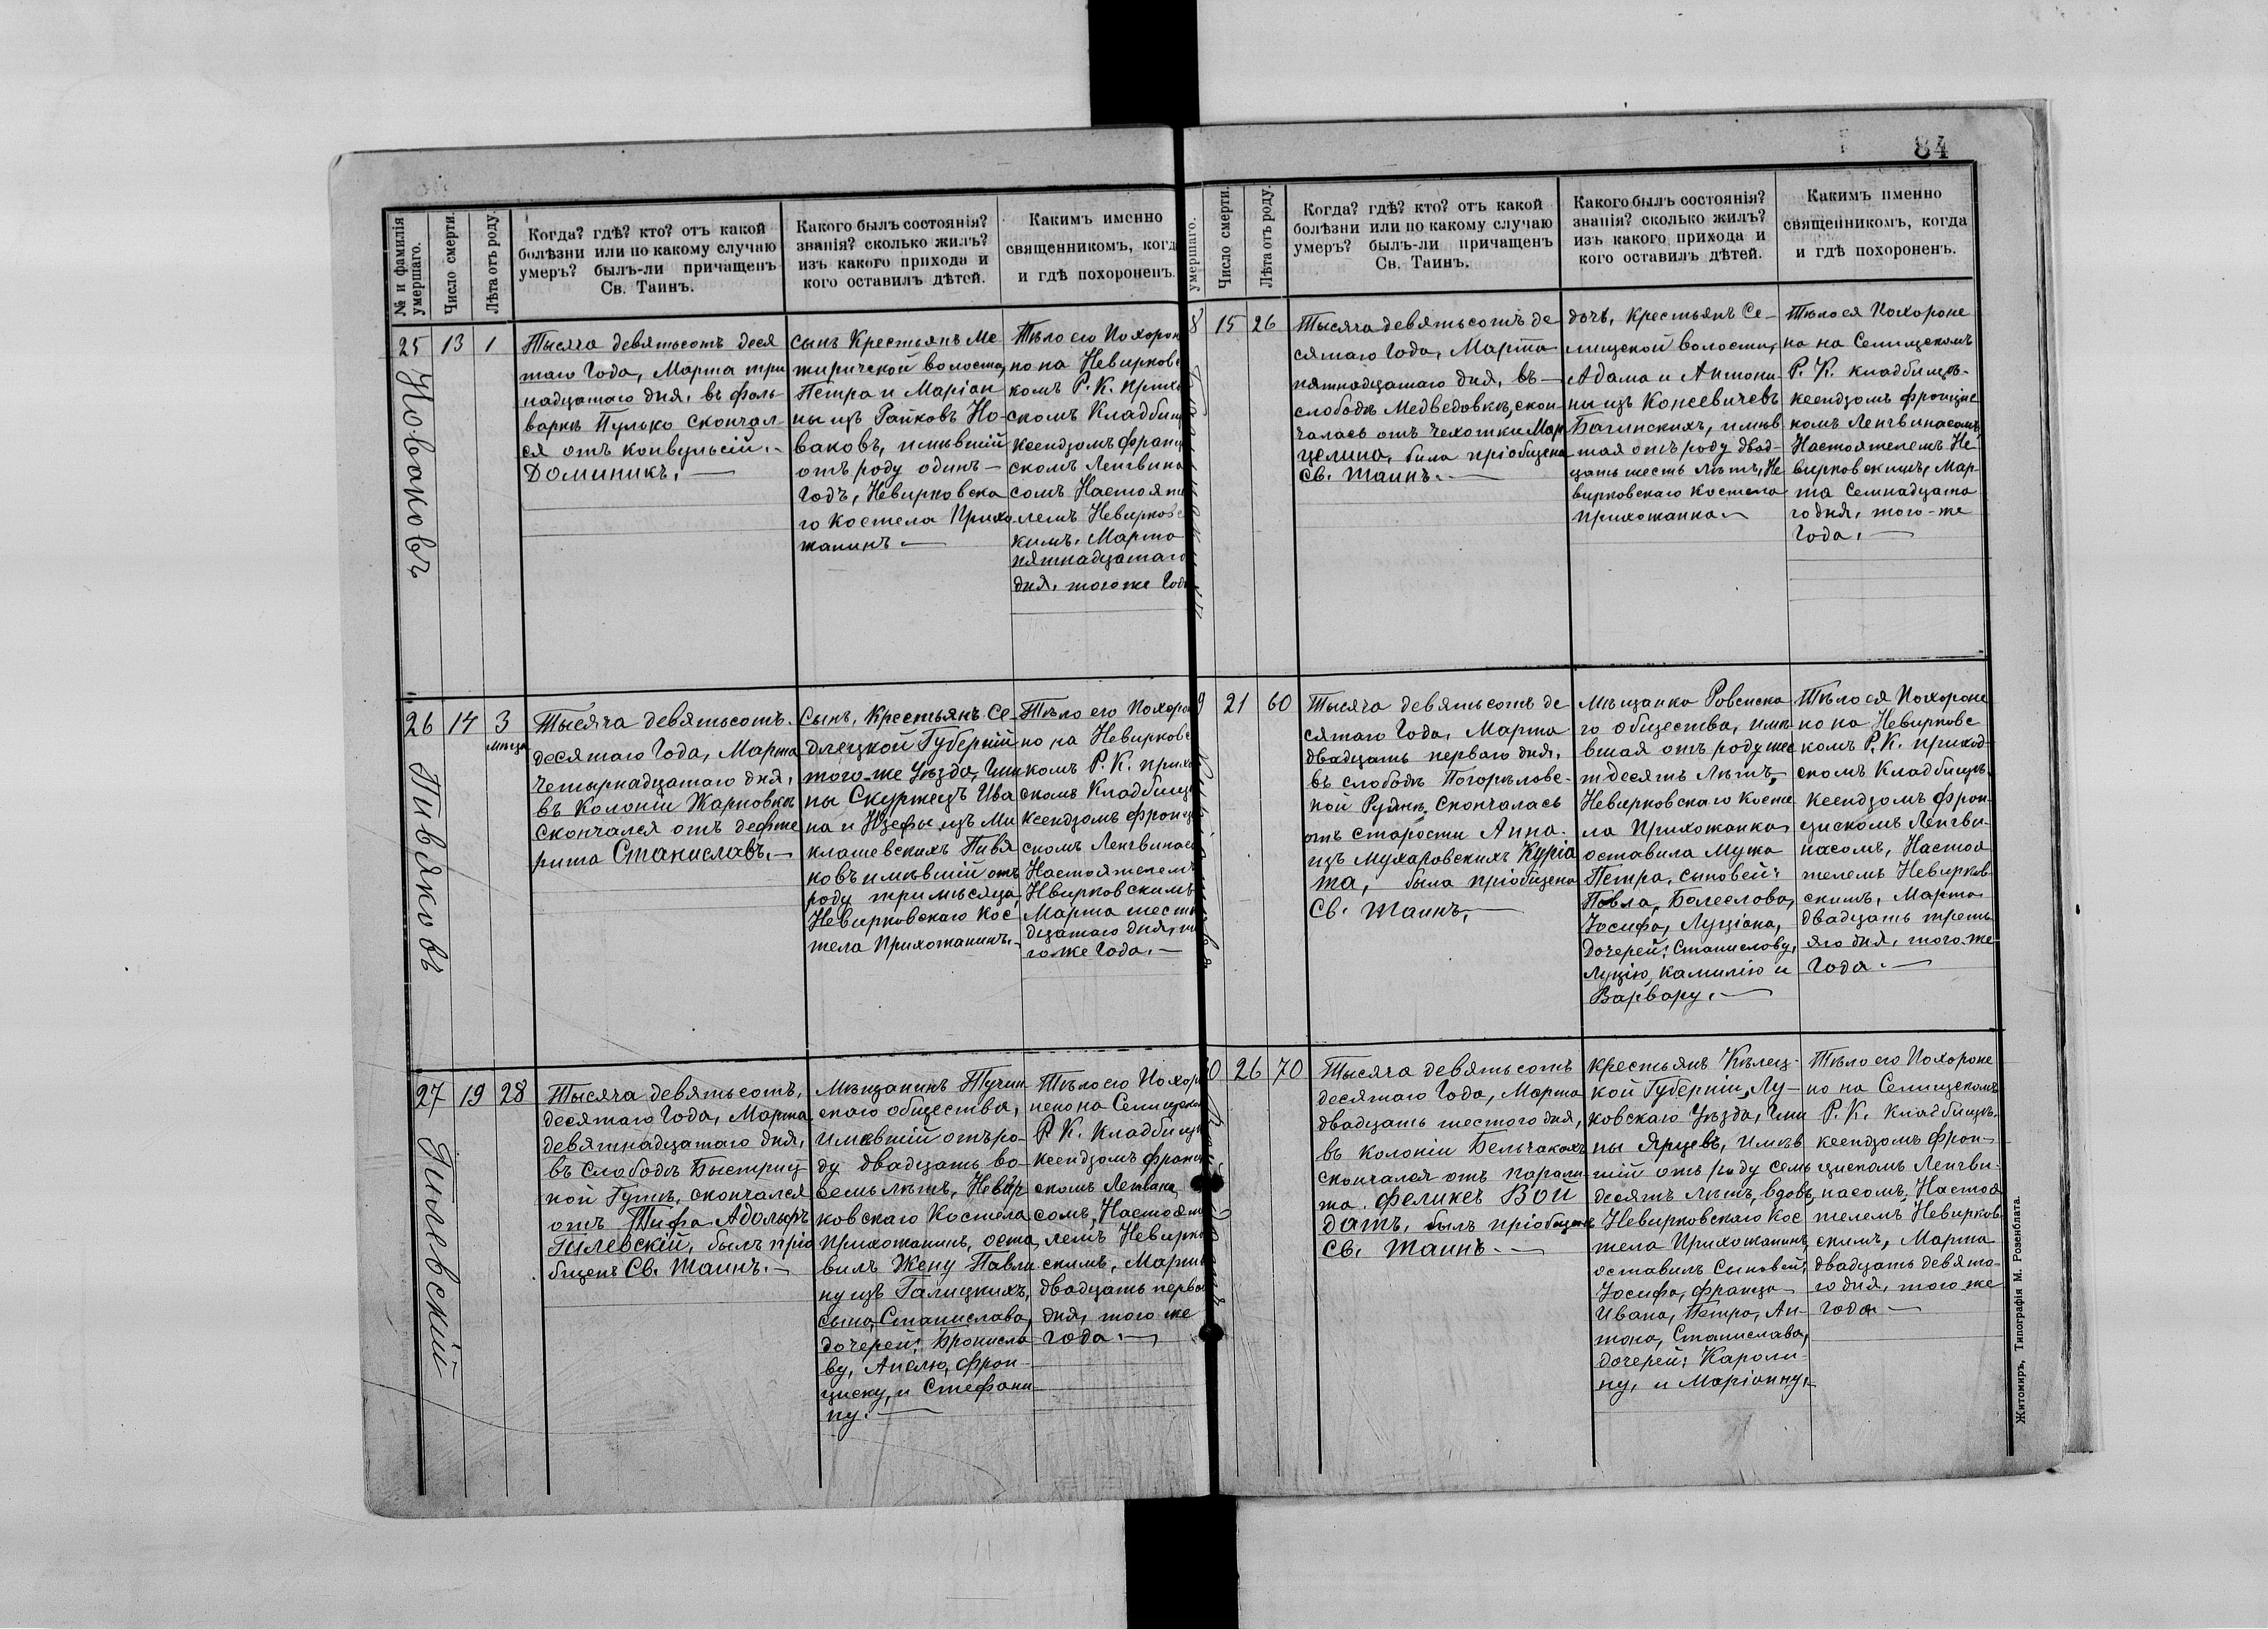 84
№ и фамилія умершаго.
Число смерти.
Лѣта отъ роду.
Когда? гдѣ? кто? отъ какой
болѣзни или по какому случаю
умеръ? былъ-ли причащенъ
Св. Таинъ.
Какого былъ состоянія?
званія? сколько жилъ?
изъ какого прихода и
кого оставилъ дѣтей.
Какимъ именно
священникомъ, когд
и гдѣ похороненъ.
25
Новаковъ
13
1
Тысяча девятьсотъ деся
таго Года, Марта три
надцатаго дня, въ фоль-
варкѣ Пулько скончал-
ся отъ конвульсій.
Доминикъ.
сынъ Крестьянъ Ме
жиричской волости,
Петра и Маріан
ны изъ Райковъ Но-
ваковъ, имѣвшій
отъ роду одинъ
Годъ, Невирковска
го костела Прихо
жанинъ
Тѣло его Похорон
но на Невирковс
комъ Р. К. прихо
скомъ Кладбищ
ксендзомъ Франц
скомъ Ленгвина
сомъ Настояте
лемъ Невирковс
кимъ, Марта
пятнадцатаго
дня, того же Года
26
Пивяковъ
14
3
мѣсца
Тысяча девятьсотъ
десятаго Года, Марта
четырнадцатаго дня,
въ Колоніи Жарновкѣ
скончался отъ дефте
рита Станиславъ.
Сынъ, Крестьянъ Се-
длецкой Губерній
того-же Уѣзда, Гми
ны Скуржецъ Ива
на и Юзефы изъ Ми
клашевскихъ Пивя
ковъ имѣвшій отъ
роду три мѣсяца,
Невирковскаго Кос-
тела Прихожанинъ.
Тѣло его Похоро
но на Невирковс
комъ Р. К. прихо
скомъ Кладбищ
Ксендзомъ Францы
скомъ Ленгвинас
Настоятелемъ
Нвирковскимъ
Марта шестн
дцатаго дня, то
го-же Года.
27
Гилевскій
19
28
Тысяча девятьсотъ,
десятаго Года, Марта
девятнадцатаго дня,
въ Слободѣ Быстриц
кой Гутѣ, скончался
отъ Тифа Адольфъ
Гилевскій, былъ пріо
бщенъ Св. Таинъ.
Мѣщанинъ Тучин
скаго общества,
имѣвшій отъ ро-
ду двадцать во-
семь лѣтъ, Невир
ковскаго Костела
Прихожанинъ, оста
вилъ Жену Павли
ну изъ Галицкихъ,
сына, Станислава,
дочерей: Бронисла
ву, Анелю, Фран-
циску, и Стефани
ну.
Тѣло его Похор
нено на Селищском
Р. К. Кладбищ
ксендзомъ Франц
скомъ Ленвина
сомъ, Настоят
лемъ Невирко
скимъ, Марта
двадцать перва
дня, того же
Года.
умершаго.
Число смерти.
Лѣта отъ роду.
Когда? гдѣ? кто? отъ какой
болѣзни или по какому случаю
умеръ? былъ-ли причащенъ
Св. Таинъ.
Какого былъ состоянія?
званія? сколько жилъ?
изъ какого прихода и
кого оставилъ дѣтей.
Какимъ именно
священникомъ, когда
и гдѣ похороненъ.
8
15
26
Тысяча девятьсотъ де
сятаго Года, Марта
пятнадцатаго дня, въ
слободѣ Медведовкѣ, скон
чалась отъ чехотки Мар
целина, была пріобщена
Св. Таинъ.
дочь, крестьянъ Се-
лищской волости,
Адама и Антони-
ны изъ Консевичевъ
Багинскихъ, имѣв
шая отъ роду двад-
цать шесть лѣтъ, Не
вирковскаго костела
прихожанка
Тѣло ея Похороне
на на Селищскомъ
Р. К. кладбищѣ
ксендзомъ Францис
комъ Ленгвинасомъ,
Настоятелемъ Не-
вирковскимъ, Мар-
та Семнадцата
го дня, того-же
Года.
9
21
60
Тысяча девятьсотъ де
сятаго Года, Марта
двадцать перваго дня,
въ слободѣ Погорѣловс-
кой Рудкѣ, скончалась
отъ старости Анна
изъ Мухаровскихъ Курія
та, была пріобщена
Св. Таинъ,
Мѣщанка Ровенска
го общества, имѣ
вшая отъ роду шес
тдесятъ Лѣтъ,
Невирковскаго Косте
ла Прихожанка
оставила Мужа
Петра, сыновей:
Павла, Болеслова,
Іосифа, Луціана,
Дочерей: Станиславу,
Луцію, Камилію и
Варвару.
Тѣло ея Похороне
но на Невирковс
комъ Р. К. приход-
скомъ Кладбищѣ
Ксендзомъ Фран-
цискомъ Ленгви-
насомъ, Настоя
телемъ Невирков-
скимъ, Марта
двадцать треть
яго дня, того-же
Года.
0
26
70
Тысяча девятьсотъ
десятаго Года, Марта
двадцать шестого дня,
въ колоніи Бельчакахъ
скончался отъ парали
та. Феликсъ Вой
датъ, былъ пріобщенъ
Св. Таинъ.
крестьянъ Кѣлец-
кой Губерніи, Лу-
ковскаго Уѣзда, Гми
ны Ярцевъ, имѣв
шій отъ роду семь
десятъ лѣтъ, вдовъ,
Невирковскаго Кос
тела Прихожанинъ,
оставилъ Сыновей:
Іосифа, Франца
Ивана, Петра, Ан-
тона, Станислава,
дочерей: Кароли-
ну, и Маріанну.
Тѣло его Похороне
но на Селищскомъ
Р. К. Кладбищѣ.
ксендзомъ Фран-
цискомъ Ленгви-
насомъ, Настоя
телемъ Невирков-
скимъ, Марта
двадцать девята-
го дня, того же
Года
Житомиръ, Типографія М. Розенблата.